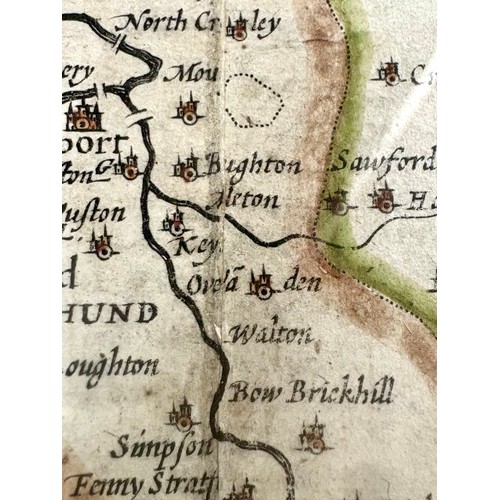 North Cra ley
ery
Mou
C
port
ton G
Bughton
Sawford
Meton
Ha
uston
Key
d
Ove ā den
HUND
Walton
oughton
Bow Brickhill
Simpson
Fenny Stratf